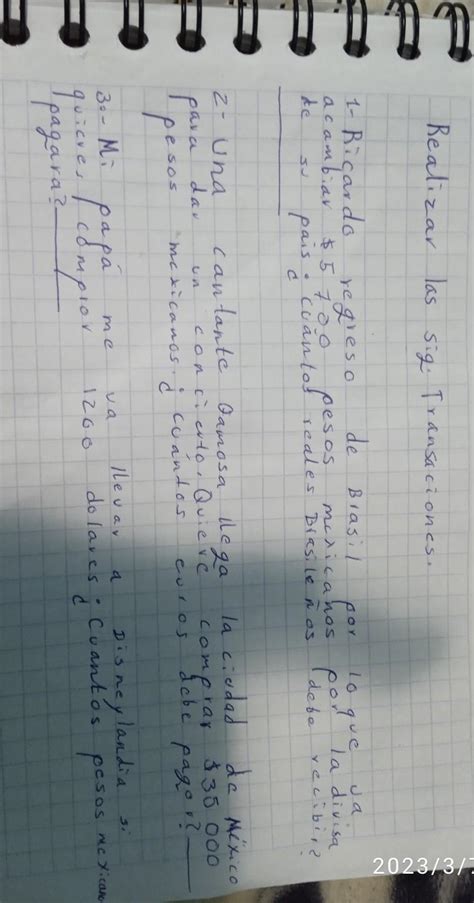 Realizar las sig. Transaciones.
1- Ricardo regreso de Brasil por lo que va
acambiar $5 700 pesos mexicanos por la divisa
de su pais. ¿Cuántos reales Brasileños debe recibir?
2- Una cantante famosa llega la ciudad de México
para dar un concierto. Quiere comprar $35 000
pesos mexicanos. ¿Cuántos euros debe pagar?
3.- Mi papá me va llevar a Disneylandia si
quieres comprar 1200 dolares ¿Cuantos pesos mexicano
pagara?
2023/3/7